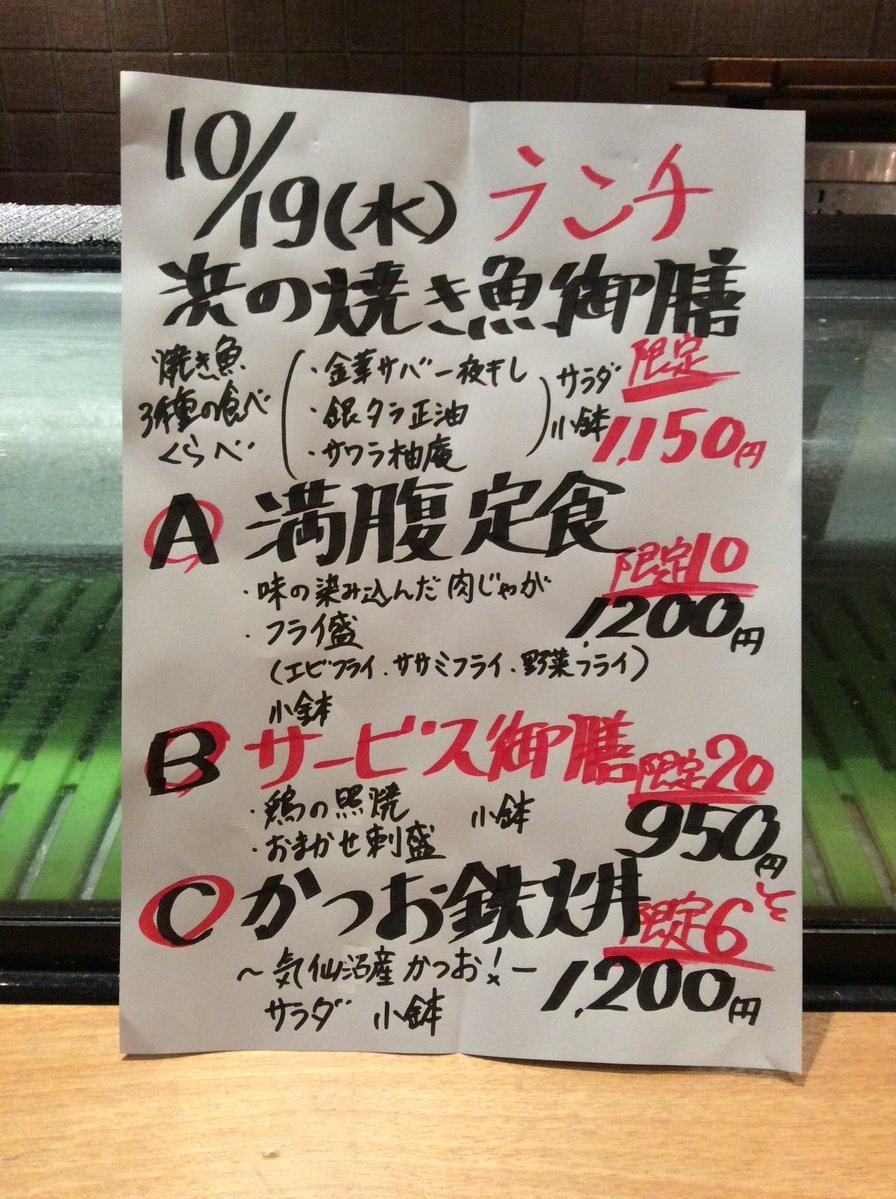 10/19(水) ランチ
浜の焼き魚御膳
焼き魚
3種の食べ
くらべ
・金華サバ一夜干し
・銀タラ正油
・サワラ柚庵
サラダ
小鉢
限定
1,150円
A 満腹定食
限定10
・味の染み込んだ肉じゃが
1,200円
・フライ盛
(エビフライ.ササミフライ.野菜フライ)
小鉢
B サービス御膳 限定20
・鶏の照焼 小鉢
・おまかせ刺盛
950円
C かつお鉄火丼
限定6
〜気仙沼産かつお!ー
1,200円
サラダ 小鉢